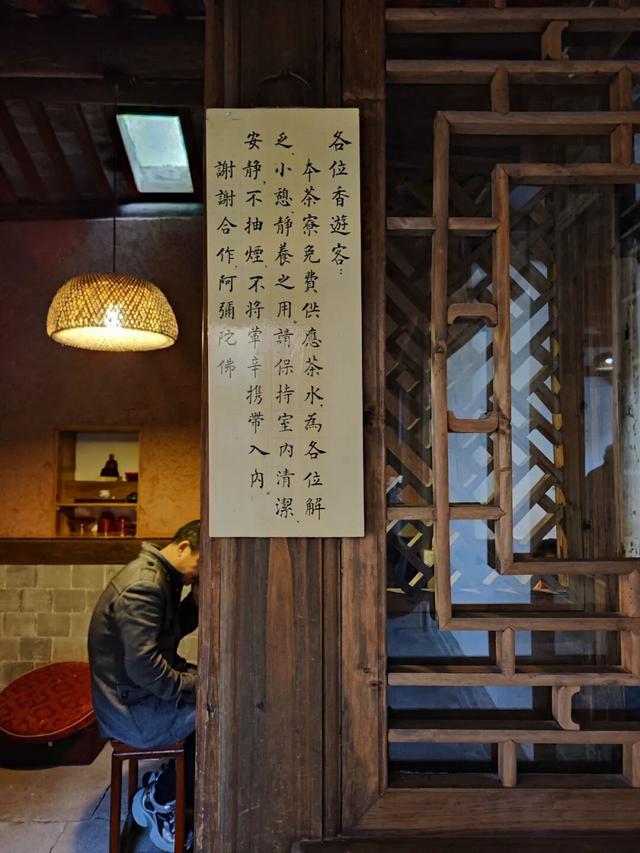 各位香遊客：
本茶寮免費供應茶水，為各位解
乏、小憩、靜養之用。請保持室內清潔、
安静，不抽煙，不將葷辛携帶入內。
謝謝合作，阿彌陀佛